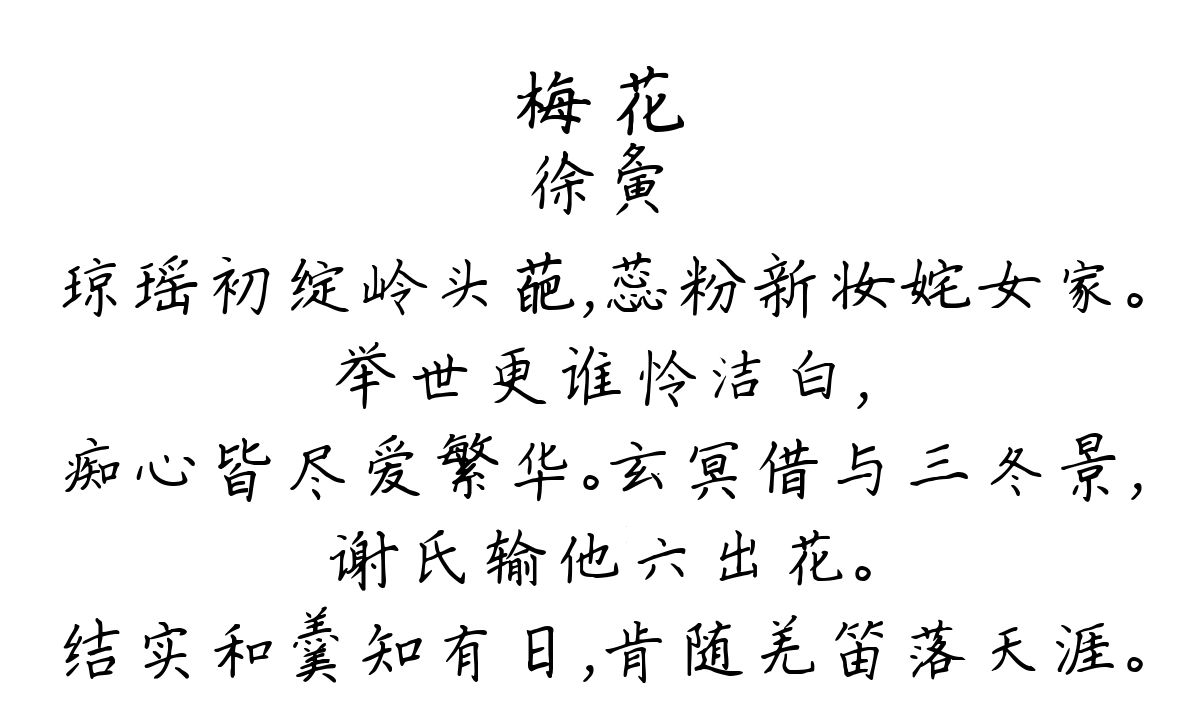 梅花
徐夤
琼瑶初绽岭头葩,蕊粉新妆姹女家。
举世更谁怜洁白,
痴心皆尽爱繁华。玄冥借与三冬景,
谢氏输他六出花。
结实和羹知有日,肯随羌笛落天涯。